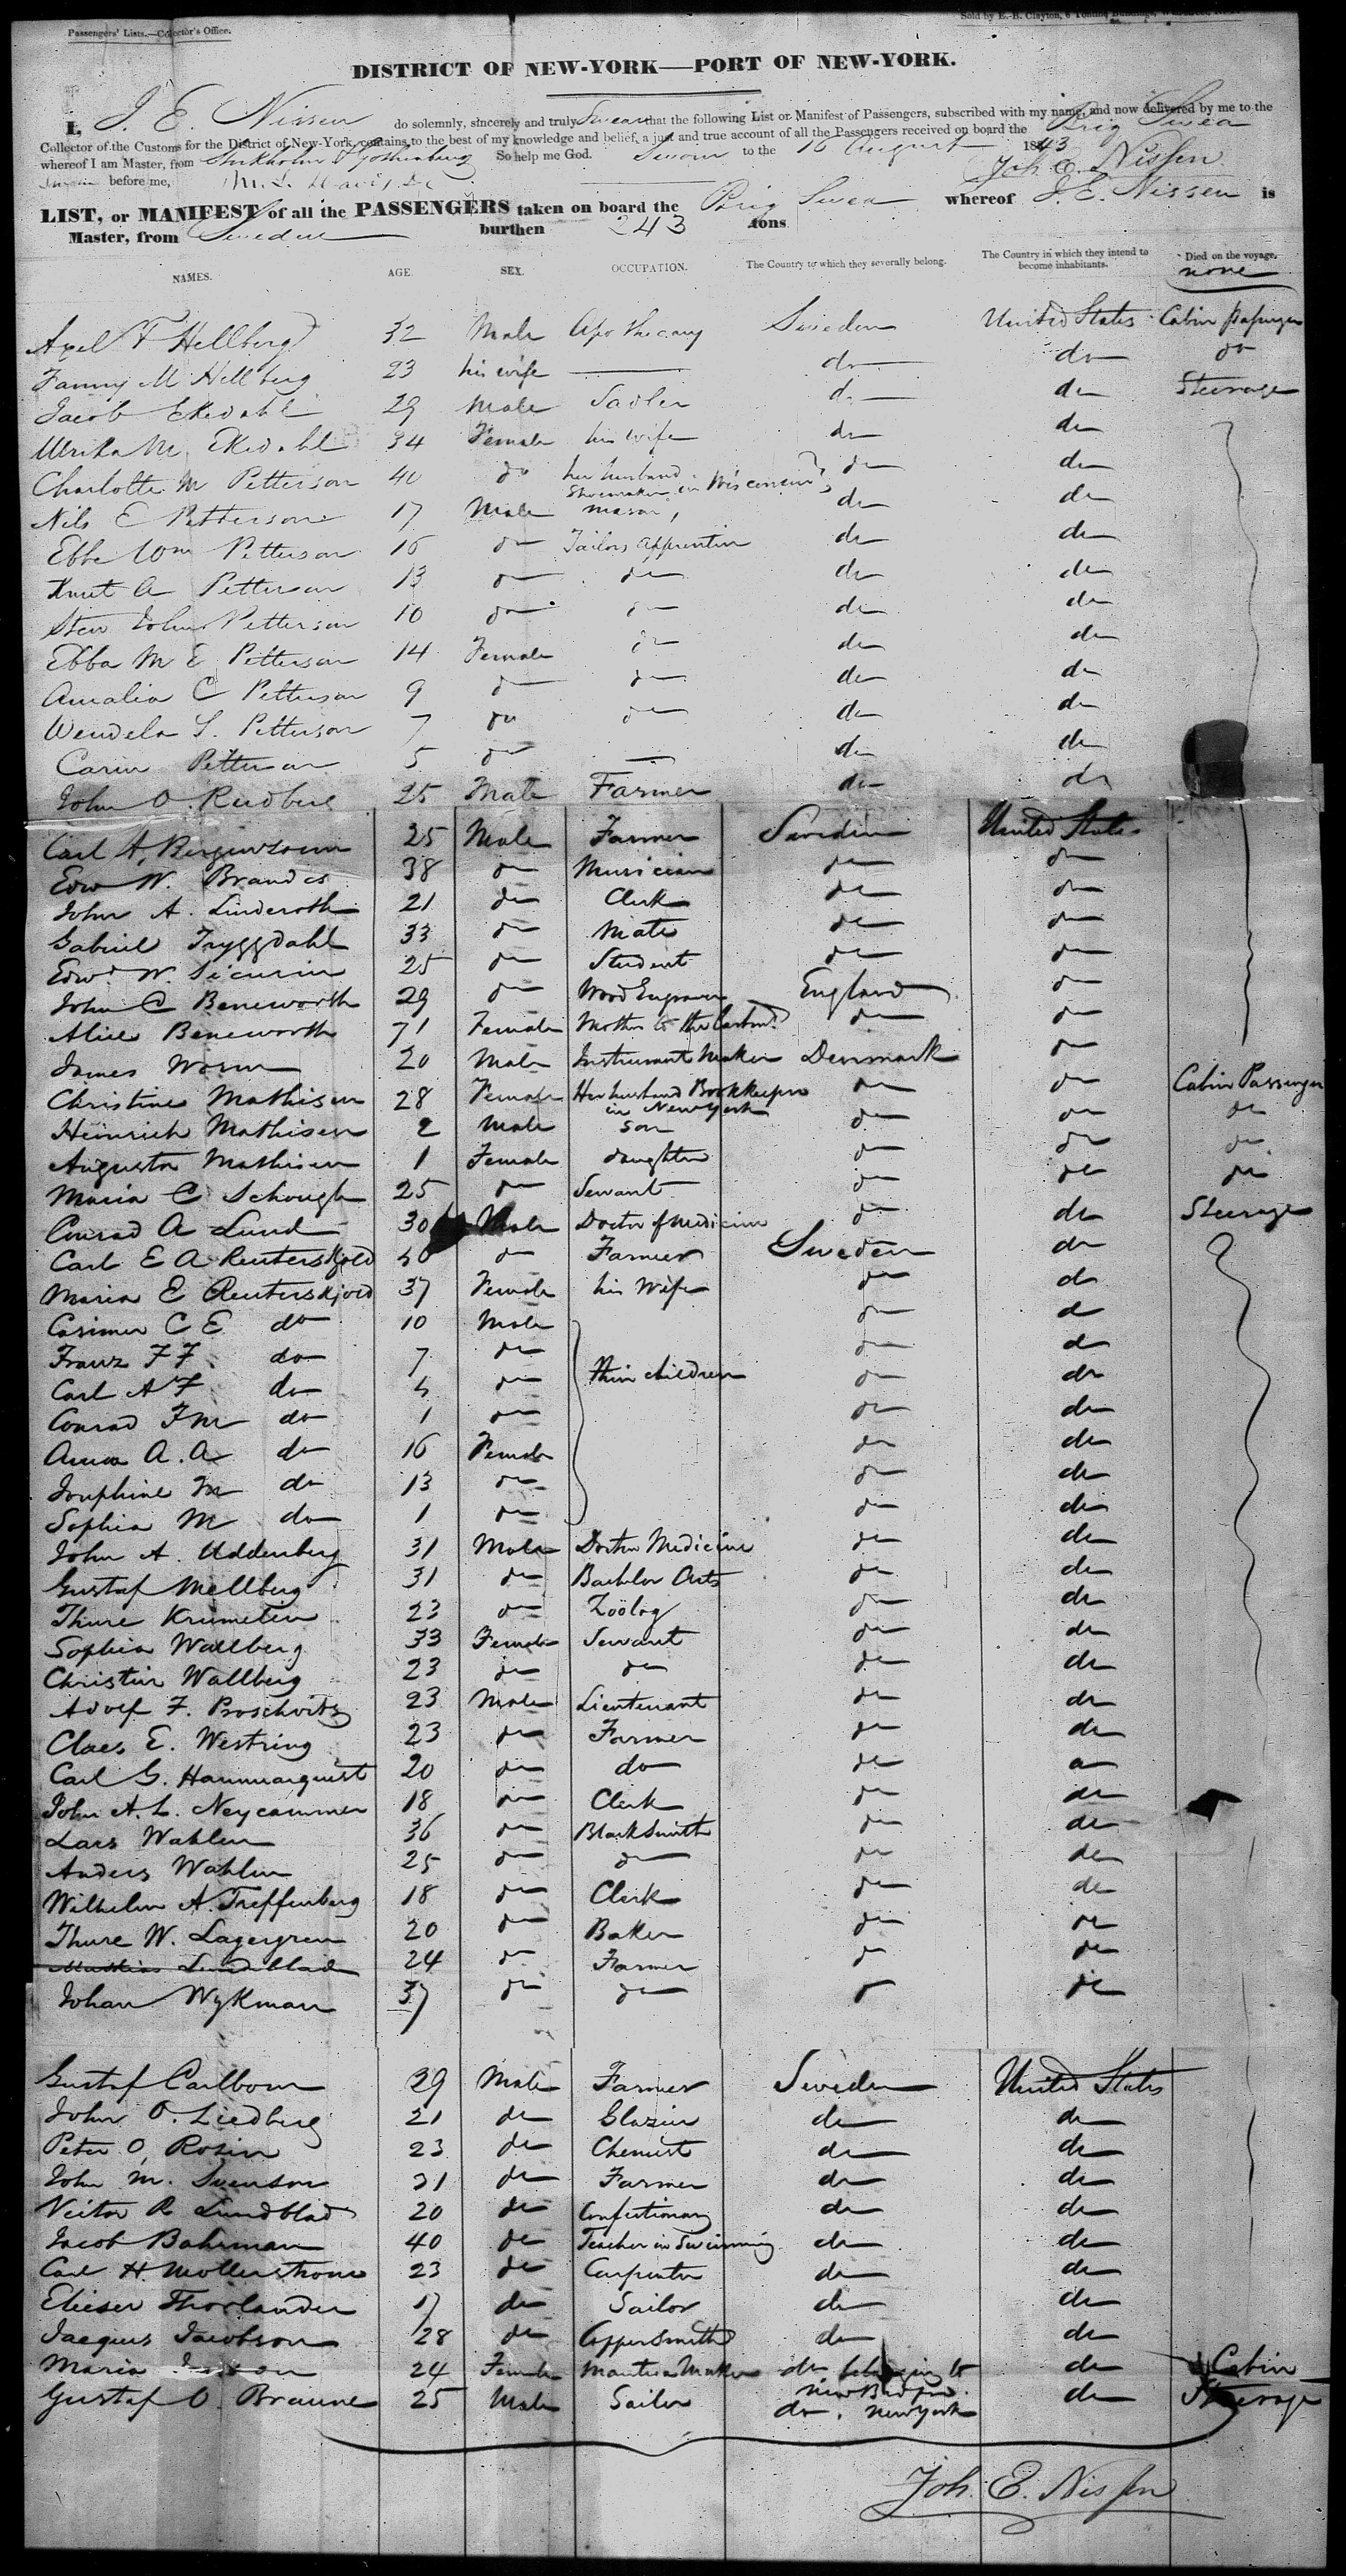 Passengers' Lists.—Collector's Office.
Sold by E. B. Clayton, 6
DISTRICT OF NEW-YORK—PORT OF NEW-YORK.
I, J. E. Nissen do solemnly, sincerely and truly Swear that the following List or Manifest of Passengers, subscribed with my name, and now delivered by me to the
Collector of the Customs for the District of New-York, contains, to the best of my knowledge and belief, a just and true account of all the Passengers received on board the Brig Swea
whereof I am Master, from Stockholm & Gothenburg So help me God. Sworn to the 16 August 1843
before me, Joh. E. Nissen
LIST, or MANIFEST of all the PASSENGERS taken on board the Brig Swea whereof J. E. Nissen is
Master, from Sweden burthen 243 tons
NAMES. AGE. SEX. OCCUPATION. The Country to which they severally belong. The Country in which they intend to become inhabitants. Died on the voyage.
none
Axel F Hellberg 32 Male Apothecary Sweden United States Cabin passenger
Fanny M Hellberg 23 his wife — do do do
Jacob Ekedahl 29 Male Sadler do do Steerage
Ulrika M. Ekedahl 34 Female his wife do do
Charlotte M Petterson 40 do her husband Shoemaker in Wisconsin do do
Nils E Petterson 17 Male mason, do do
Ebbe Wm Petterson 16 do Tailors apprentice do do
Knut A Petterson 13 do do do do
Sten John Petterson 10 do do do do
Ebba M E Petterson 14 Female do do do
Amalia C Petterson 9 do do do do
Wendela S. Petterson 7 do do do do
Carin Petterson 5 do — do do
John O. Rudberg 25 Male Farmer do do
Carl A. 25 Male Farmer Sweden United States
Edw W. Brandes 38 do Musician do do
John A. Linderoth 21 do Clerk do do
Gabriel Tryggdahl 33 do Mate do do
Edwd W. 25 do Student do do
John C Beneworth 29 do Wood Engraver England do
Alice Beneworth 71 Female Mother to the do do
James Worm 20 Male Instrument Maker Denmark do
Christine Mathisen 28 Female Her husband Bookkeeper in New York do do Cabin Passenger
Heinrich Mathisen 2 Male son do do do
Augusta Mathisen 1 Female daughter do do do
Maria C Schough 25 do Servant do do do
Conrad A Lund 30 Male Doctor of medicine do do Steerage
Carl E A Reuterskjold 50 do Farmer Sweden do
Maria E Reuterskjold 37 Female his Wife do do
Casimer C E do 10 Male do do
Franz F F. do 7 do do do
Carl A F do 5 do their children do do
Conrad F M do 1 do do do
Anna A. A do 16 Female do do
Josephine M do 13 do do do
Sophia M do 1 do do do
John A. Uddenberg 31 Male Doctor Medicine do do
Gustaf Mellberg 31 do Bachelor Arts do do
Thure Krumelin 23 do Zoölog do do
Sophia Wallberg 33 Female Servant do do
Christin Wallberg 23 do do do do
Adolf F. 23 Male Lieutenant do do
Claes E. Westring 23 do Farmer do do
Carl G. Hammarquist 20 do do do do
John A. L. Neycammer 18 do Clerk do do
Lars Wahlin 36 do Blacksmith do do
Anders Wahlin 25 do do do do
Wilhelm A. Treffenberg 18 do Clerk do do
Thure W. Lagergren 20 do Baker do do
Lundblad 24 do Farmer do do
Johan Wykman 37 do do do do
Gustaf Carlbom 29 Male Farmer Sweden United States
John O. Liedberg 21 do Glazier do do
Peter O. Rosin 23 do Chemist do do
John M. Svenson 21 do Farmer do do
Victor R Lundblad 20 do Confectionary do do
Jacob Bahrman 40 do Teacher in Swimming do do
Carl H. Mollerstrom 23 do Carpenter do do
Elieser Thorlander 17 do Sailor do do
Jacques Jacobson 28 do Coppersmith do do
Maria 24 Female Mantua Maker do belonging to New Bedford do Cabin
Gustaf O Braune 25 Male Sailor do, New York do Steerage
Joh. E. Nissen